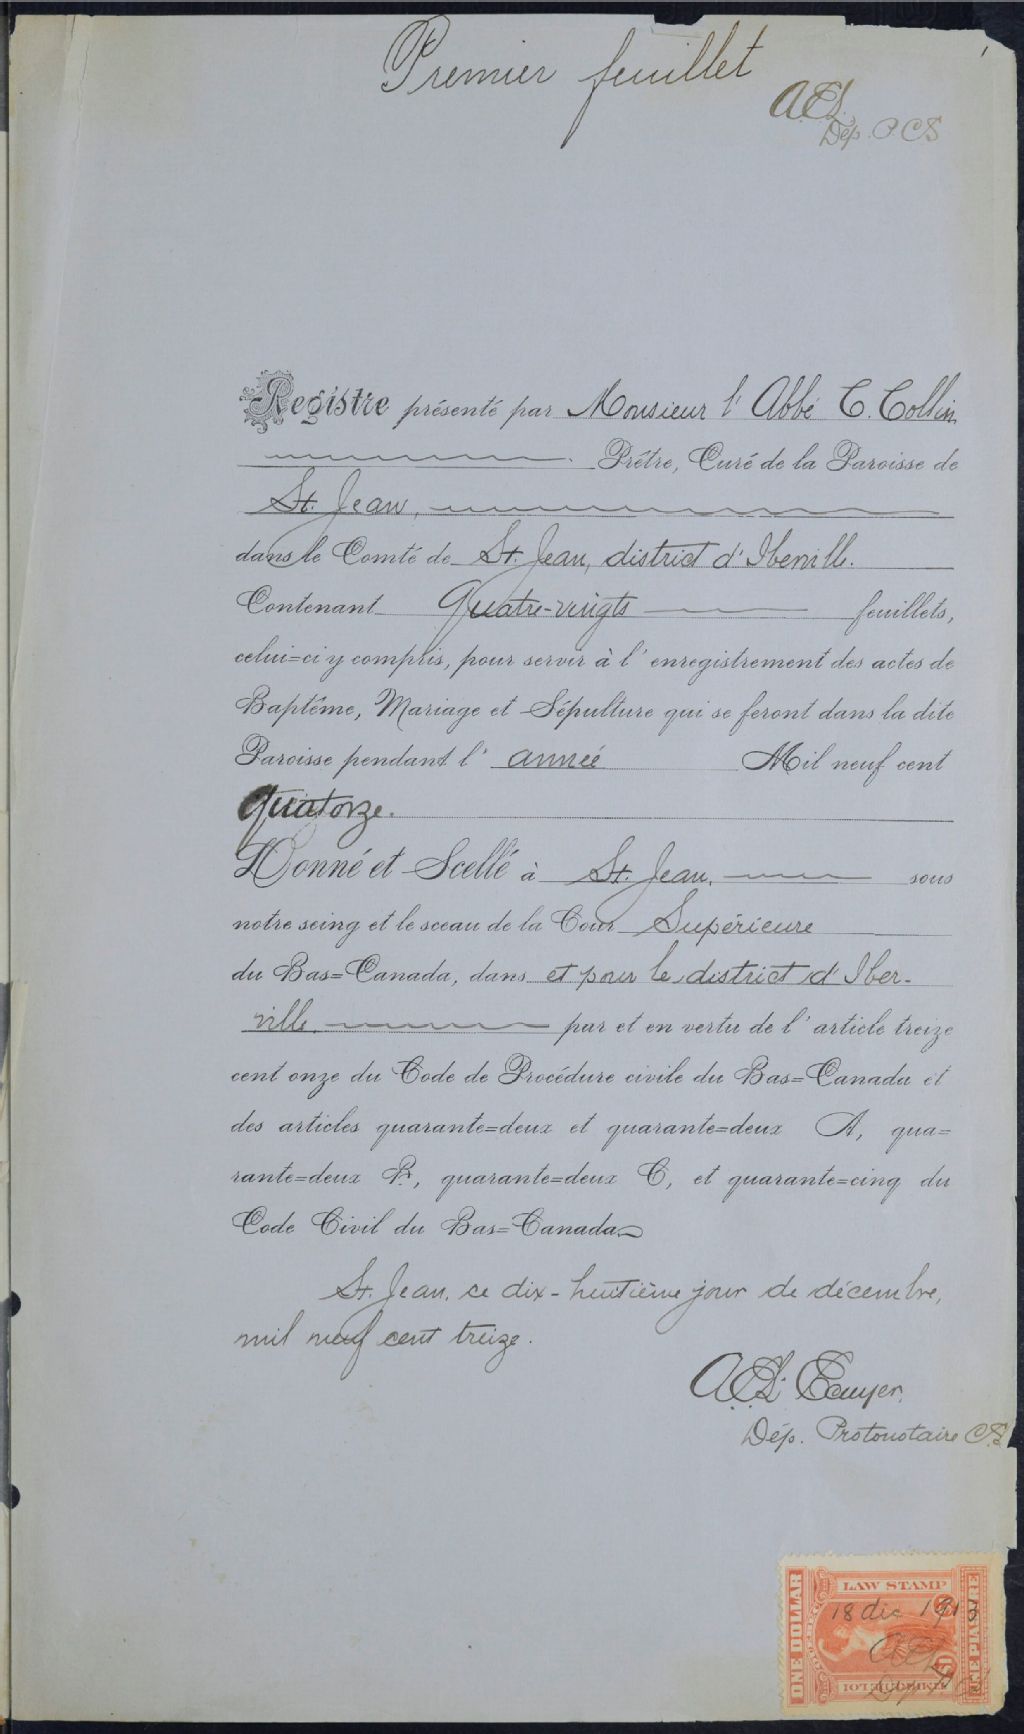 Premier feuillet
Dép. P.C.S
Registre présenté par Monsieur l'Abbé C. Collin
Prêtre, Curé de la Paroisse de
St. Jean,
dans le Comté de St. Jean, district d'Iberville.
Contenant Quatre-vingts feuillets,
celui=ci y compris, pour servir à l'enregistrement des actes de
Baptême, Mariage et Sépulture qui se feront dans la dite
Paroisse pendant l'année Mil neuf cent
quatorze.
Donné et Scellé à St. Jean, sous
notre seing et le sceau de la Cour Supérieure
du Bas=Canada, dans et pour le district d'Iber-
ville par et en vertu de l'article treize
cent onze du Code de Procédure civile du Bas=Canada et
des articles quarante=deux et quarante=deux A, qua=
rante=deux B, quarante=deux C, et quarante=cinq du
Code Civil du Bas=Canada
St. Jean, ce dix-huitième jour de décembre,
mil neuf cent treize.
Dép. Protonotaire C.S.
LAW STAMP
ONE DOLLAR
ONE PIASTRE
18 dec 1913